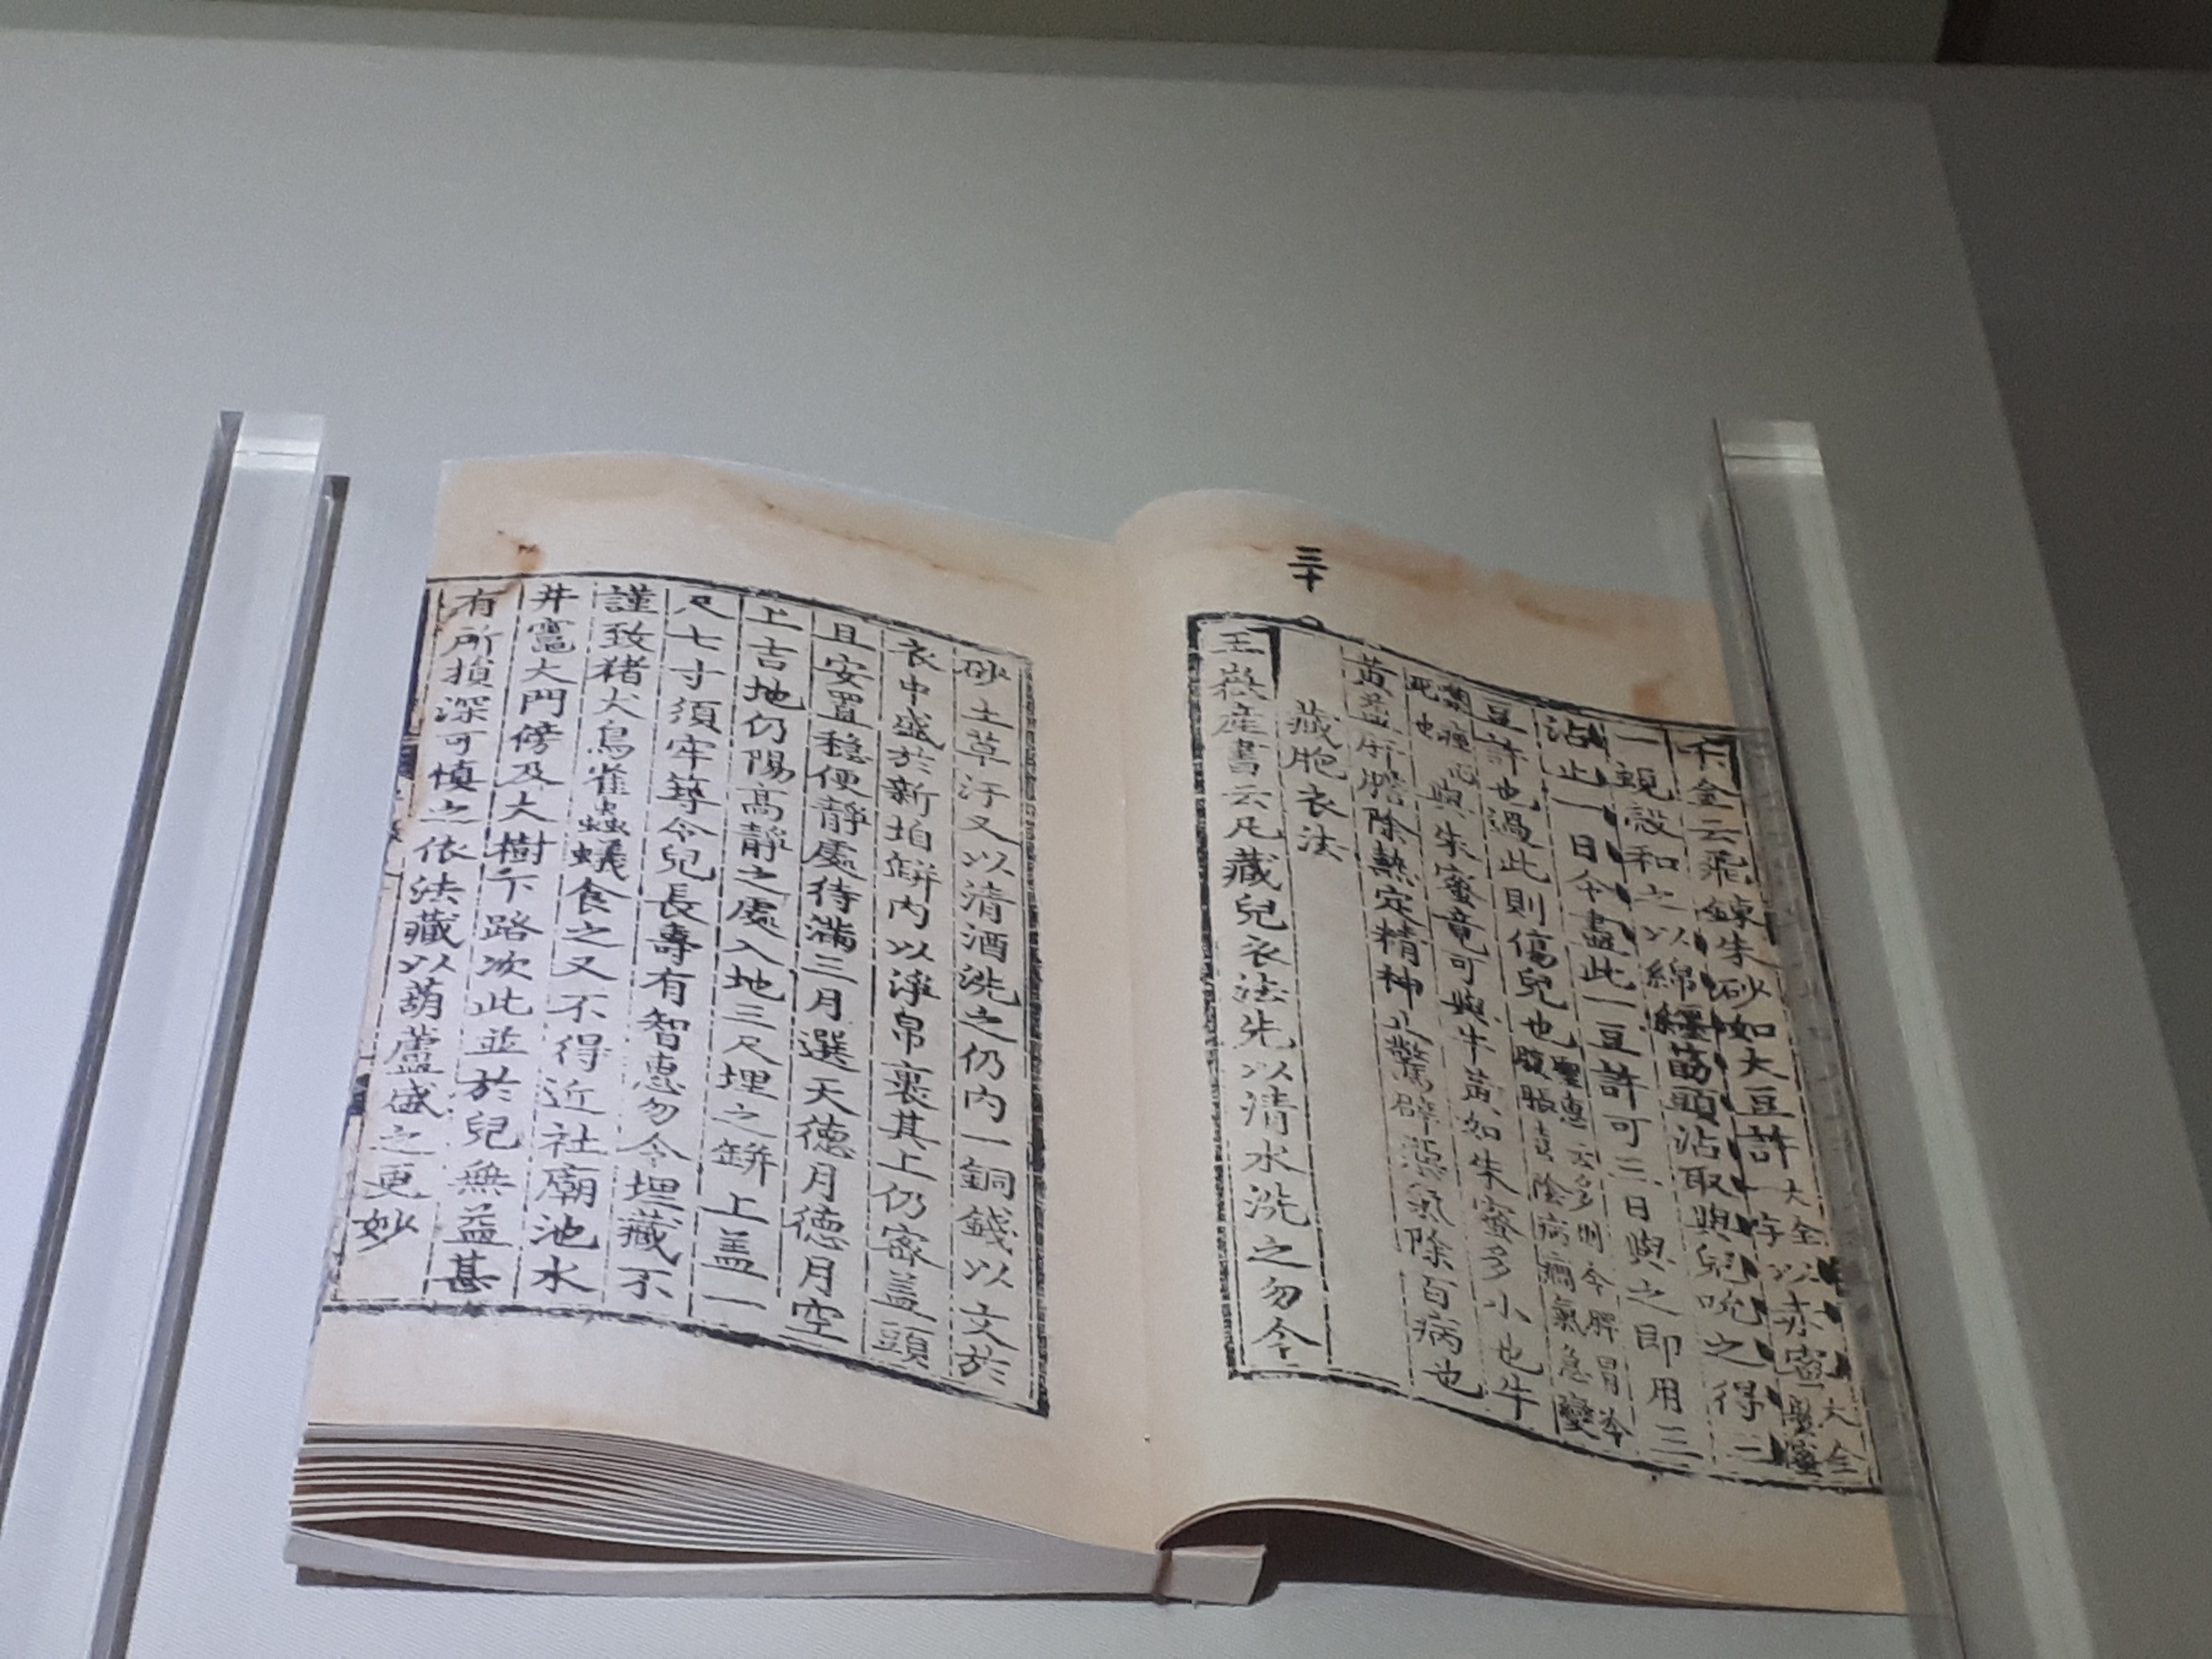 三十
千金云飛鍊朱砂如大豆許大全一字以赤蜜大全黑蜜
一蜆殼和之以綿纏筯頭沾取與兒吮之得三
沾止一日令盡此一豆許可三日與之即用三
豆許也過此則傷兒也聖惠云多則令脾胃冷腹脹
死也與朱蜜竟可與牛黃如朱蜜多小也牛
黃益肝膽除熱定精神止驚辟惡氣除百病也
藏胞衣法
王嶽產書云凡藏兒衣法先以清水洗之勿令
砂土草汙又以清酒洗之仍內一銅錢以文於
衣中盛於新坩缾內以滓帛裹其上仍密盖頭
且安置穏便靜處待滿三月選天德月德月空
上吉地仍陽高靜之處入地三尺埋之缾上盖一
尺七寸須牢築令兒長壽有智惠勿令埋藏不
謹致猪犬鳥雀虫蟻食之又不得近社廟池水
井竈大門傍及大樹下路次此並於兒無益甚
有所損深可慎之依法藏以葫蘆盛之更妙